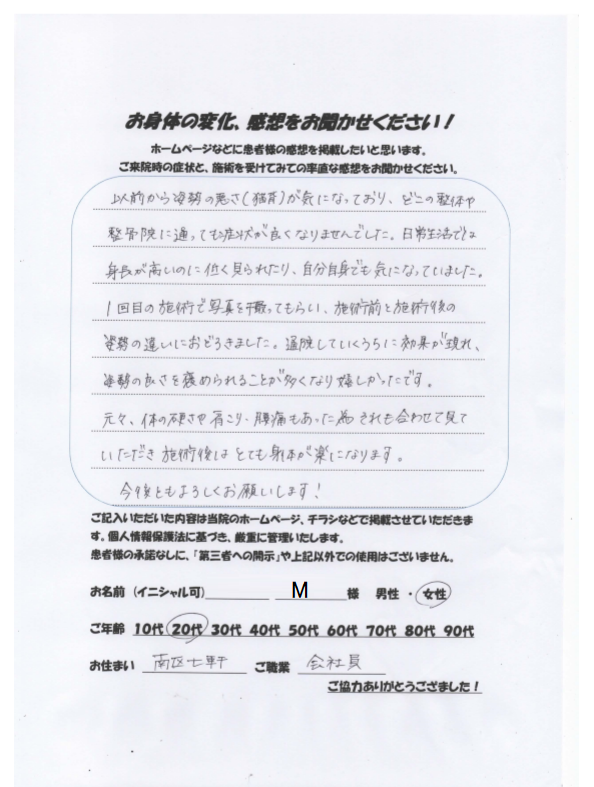 お身体の変化、感想をお聞かせください！
ホームページなどに患者様の感想を掲載したいと思います。
ご来院時の症状と、施術を受けてみての率直な感想をお聞かせください。
以前から姿勢の悪さ(猫背)が気になっており、どこの整体や
整骨院に通っても症状が良くなりませんでした。日常生活では
身長が高いのに低く見られたり、自分自身でも気になっていました。
1回目の施術で写真を撮ってもらい、施術前と施術後の
姿勢の違いにおどろきました。通院していくうちに効果が現れ、
姿勢の良さを褒められることが多くなり嬉しかったです。
元々、体の硬さや肩こり・腰痛もあった為それも合わせて見て
いただき施術後はとても身体が楽になります。
今後ともよろしくお願いします！
ご記入いただいた内容は当院のホームページ、チラシなどで掲載させていただきま
す。個人情報保護法に基づき、厳重に管理いたします。
患者様の承諾なしに、「第三者への開示」や上記以外での使用はございません。
お名前（イニシャル可） M 様 男性 ・ 女性
ご年齢 10代 20代 30代 40代 50代 60代 70代 80代 90代
お住まい 南区七軒 ご職業 会社員
ご協力ありがとうござました！